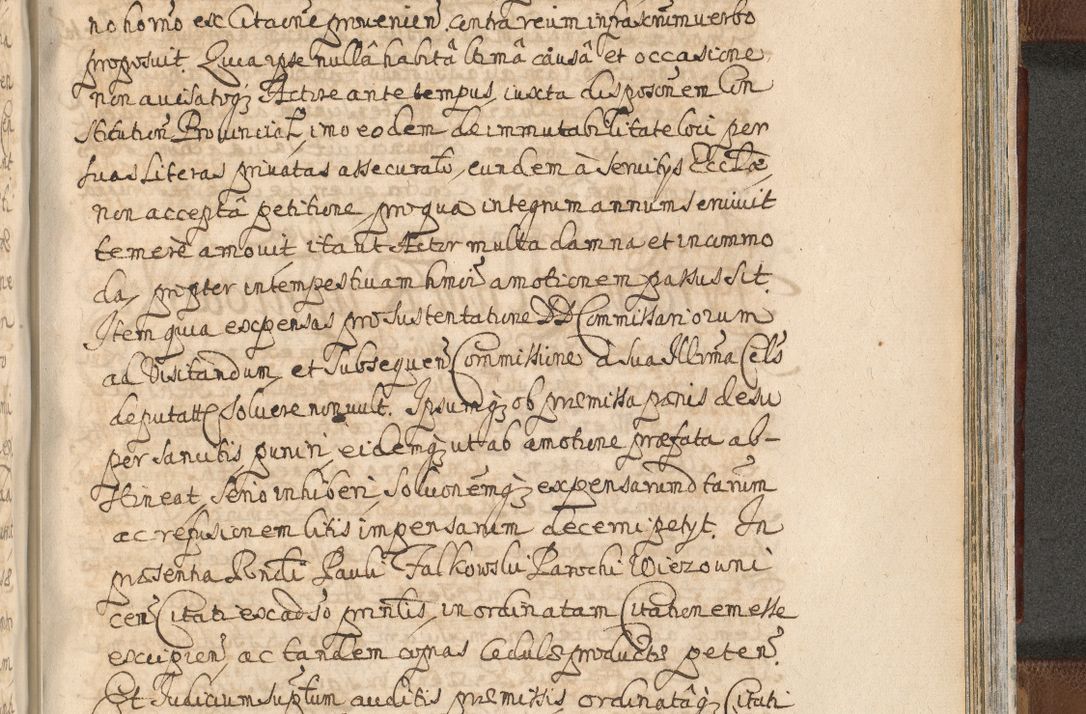 no horno ex Citaõne provenien. contra reum infrascrium verbo
proposuit. Quia ipse nullâ habitâ ltmâ causâ et occasione,
non avisatoqꝫ Actore ante tempus, iuxta disposõnem Con
stitution Provincial, imo eodem de immutabilitate loci per
suas Literas privatas assecurato, eundem à servitys Ecclæ
non acceptâ petitione pro qua integrum annum servivit
temerè amovit, ita ut Actor multa damna et incommo
da, propter intempestivam hmoi amotionem passus sit.
Item quia expensas pro sustentatione DD Commissariorum
ad Visitandum, et subsequen Commissione à sua Illma Cels
deputatt, solvere non vult. Ipsumqꝫ ob præmissa pænis desu
per sancitis puniri, eidemqꝫ ut ab amotione præfata ab-
stineat, serio inhiberi, solvonémqꝫ expensarum dtarum
ac refusionem litis impensarum decerni petyt. In
præsentia Rndi Pauli Falkowski Parochi Wiezowni
cen Citati ex adso printis, inordinatam Citationem esse
excipien, ac tandem copias Cedulæ productæ peten.
Et Judicium suptum auditis præmissis ordinatâqꝫ Citati